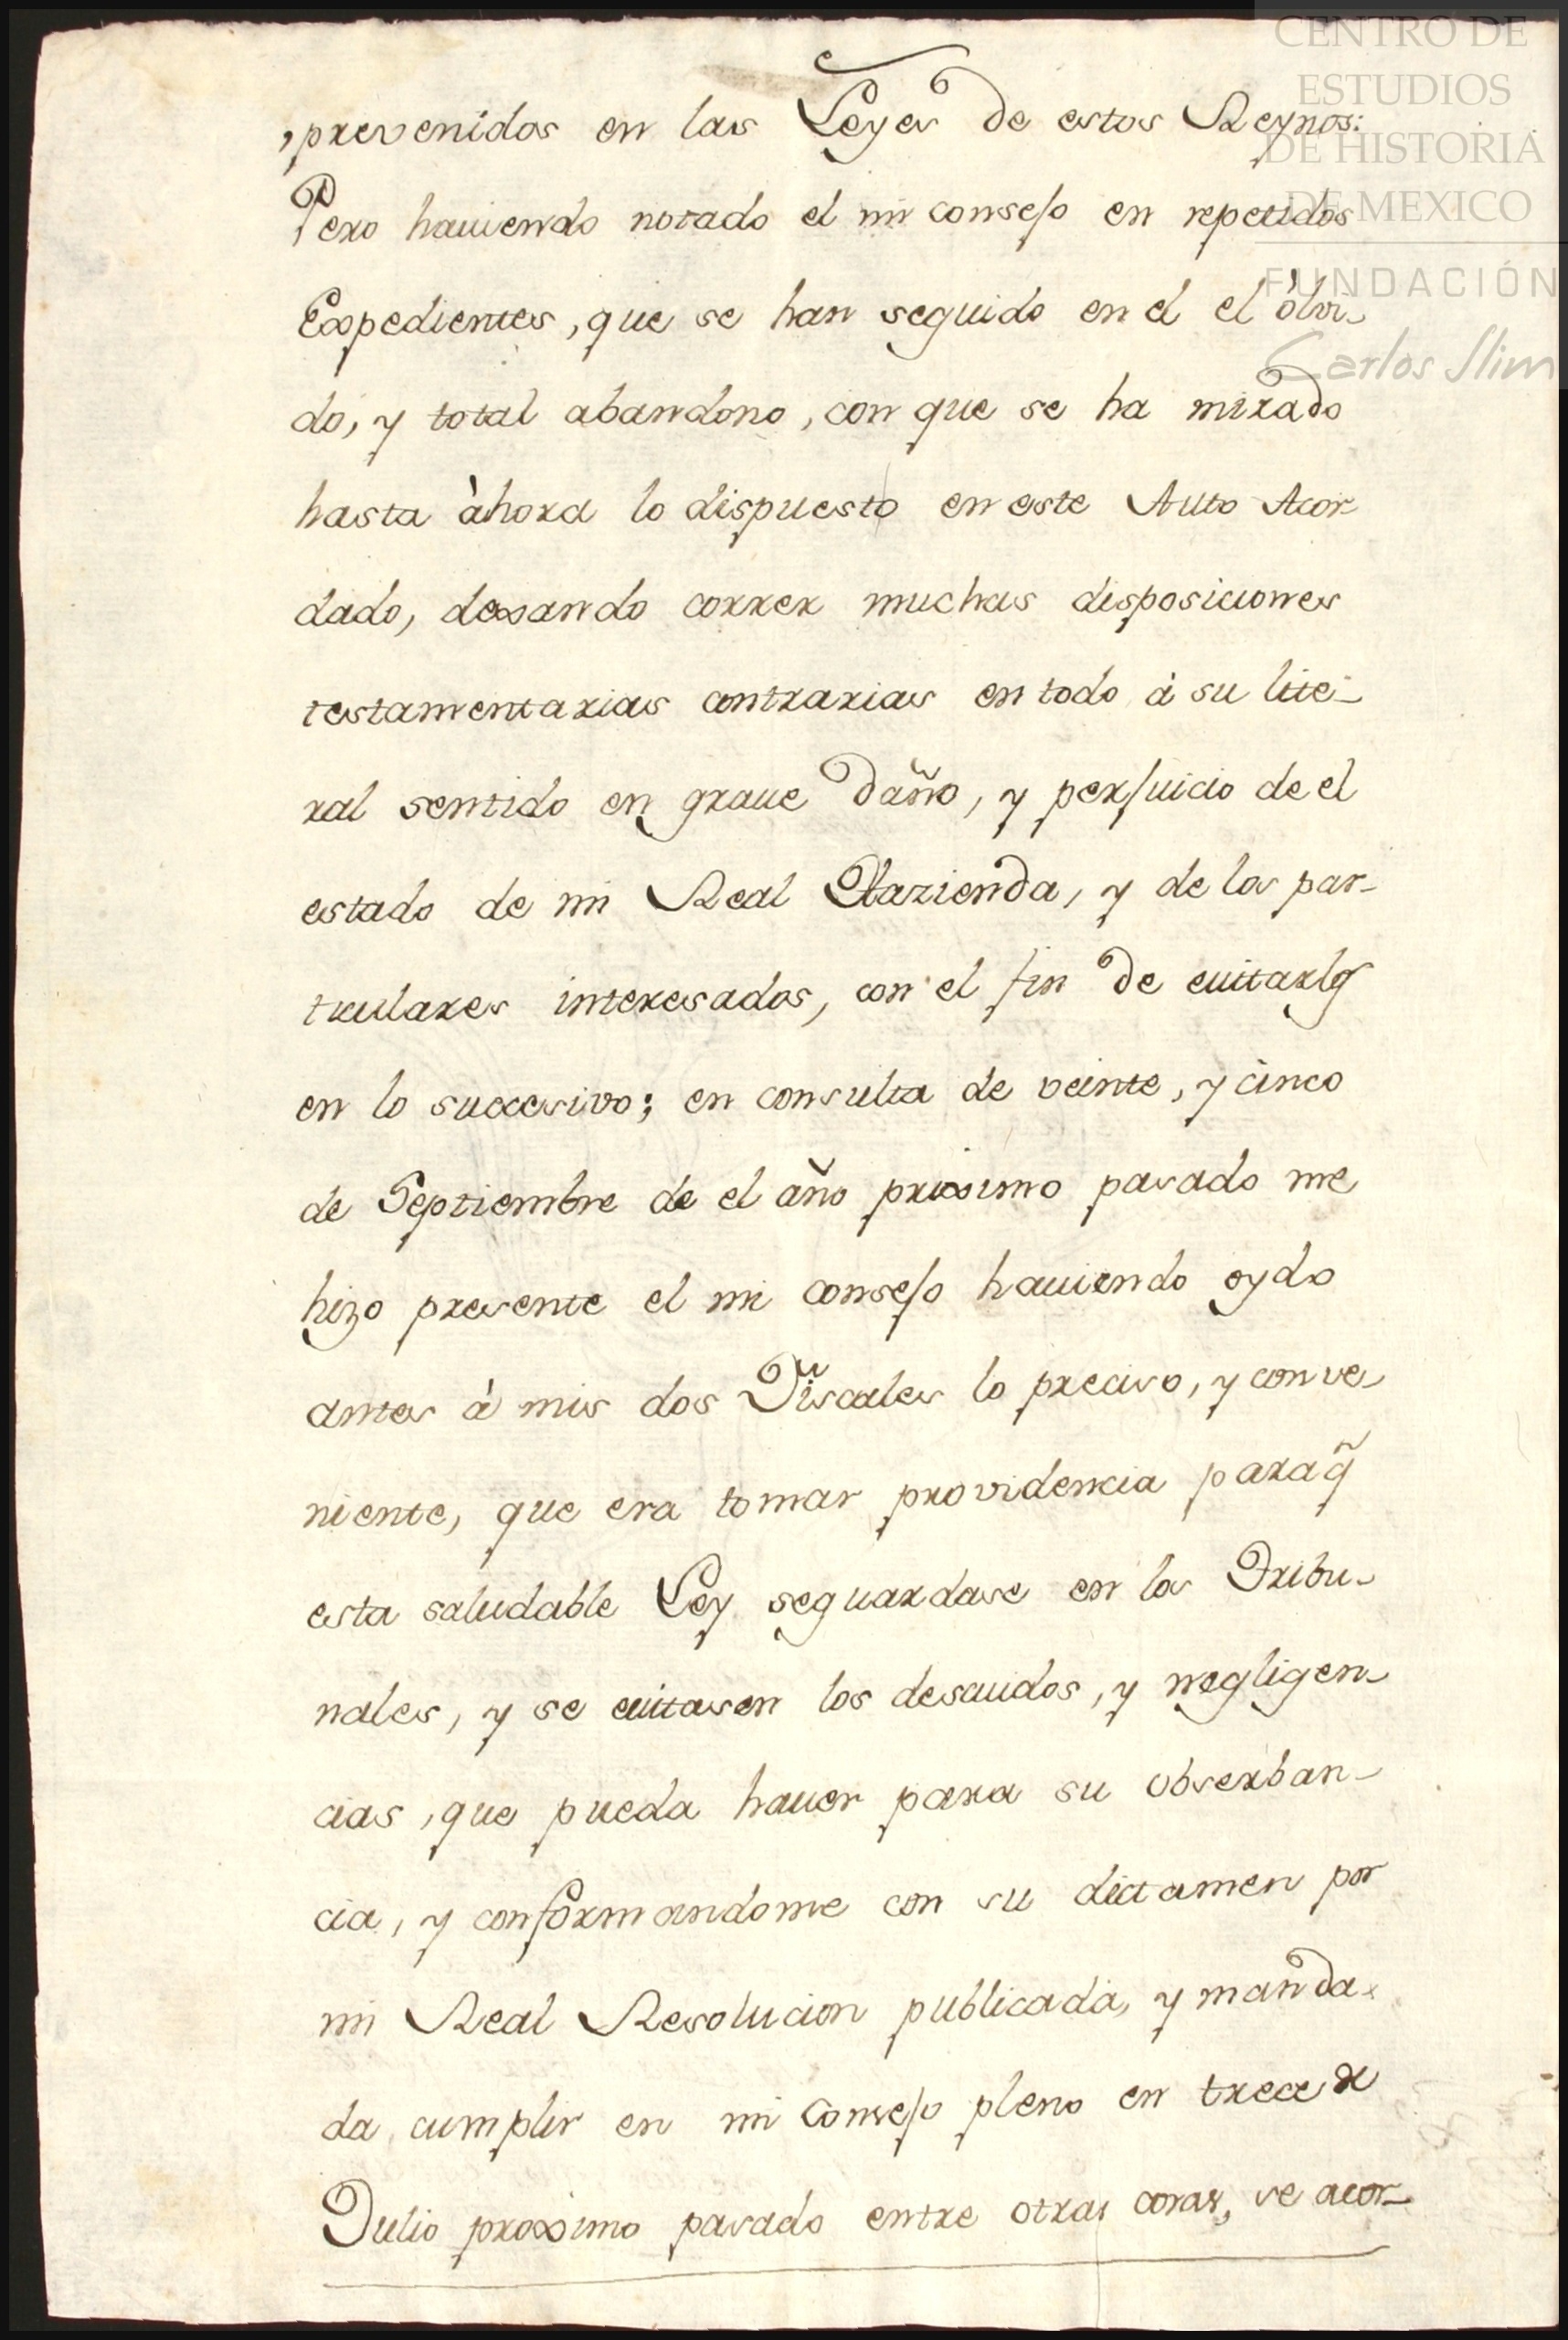 CENTRO DE
ESTUDIOS
DE HISTORIA
DE MEXICO
FUNDACIÓN
Carlos Slim
, prevenidos en las Leyes de estos Reynos:
Pero hauiendo notado el mi consejo en repetidos
Expedientes, que se han seguido en el el òlvi-
do, y total abandono, con que se ha mirado
hasta àhora lo dispuesto en este Auto Acor-
dado, dexando correr muchas disposiciones
testamentarias contrarias en todo à su lite-
ral sentido en graue daño, y perjuicio de el
estado de mi Real Hazienda, y de los par-
ticulares interesados, con el fin de euitarlos
en lo succesivo; en consulta de veinte, y cinco
de Septiembre de el año proximo pasado me
hizo presente el mi consejo hauiendo oydo
antes à mis dos Fiscales lo preciso, y conve-
niente, que era tomar providencia paraq̃
esta saludable Ley seguardase en los Tribu-
nales, y se euitasen los descuidos, y negligen-
cias, que pueda hauer para su obserban-
cia, y conformandome con su dictamen por
mi Real Resolucion publicada, y manda-
da cumplir en mi Consejo pleno en trece de
Julio proximo pasado entre otras cosas, se acor-